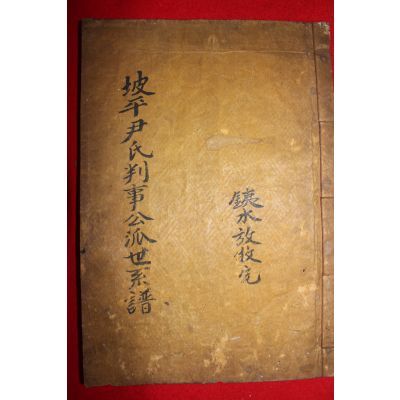 坡平尹氏判事公派世系譜
銕水放牧